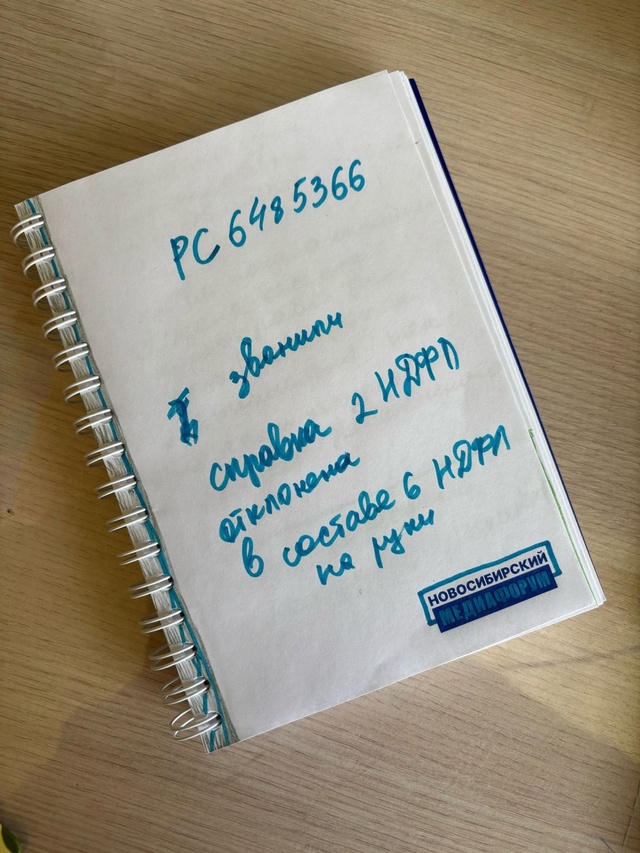 РС 6485366
звонили
справка 2 НДФЛ
отклонена
в составе 6 НДФЛ
на руки
НОВОСИБИРСКИЙ
МЕДИАФОРУМ